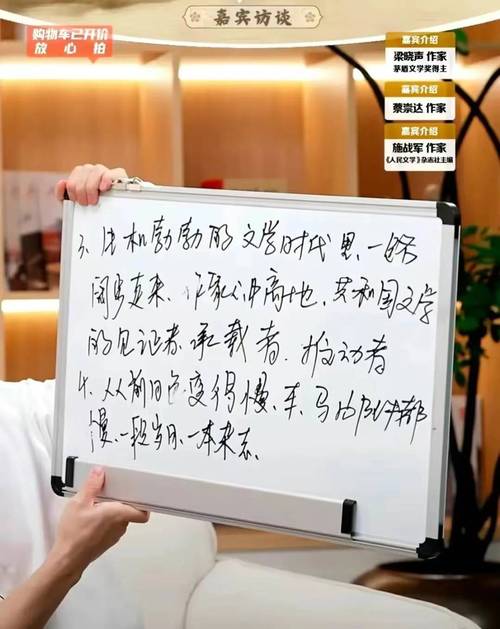 嘉宾访谈
购物车已开价
放心拍
嘉宾介绍
梁晓声 作家
茅盾文学奖得主
嘉宾介绍
蔡崇达 作家
嘉宾介绍
施战军 作家
《人民文学》杂志社主编
3、生机勃勃的文学时代里、一路
阔步走来、作家心中高地，共和国文学
的见证者、承载者、推动者
4、从前日色变得慢、车、马、都
慢、一段岁月、一本杂志。